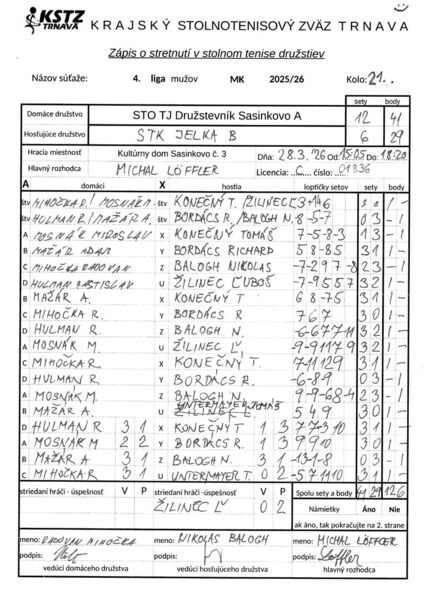 KSTZ TRNAVA KRAJSKÝ STOLNOTENISOVÝ ZVÄZ TRNAVA
Zápis o stretnutí v stolnom tenise družstiev
Názov súťaže: 4. liga mužov MK 2025/26 Kolo: 21.
sety body
Domáce družstvo STO TJ Družstevník Sasinkovo A 12 41
Hosťujúce družstvo STK JELKA B 6 29
Hracia miestnosť Kultúrny dom Sasinkovo č. 3 Dňa: 28.3.'26 Od 15:05 Do: 18:20
Hlavný rozhodca MICHAL LÖFFLER Licencia: C číslo: 01836
A domáci X hostia loptičky setov sety body
štv MIHOČKA R./ MOSNÁK M. štv KONEČNÝ T./ŽILINEC Ľ 3 0 1/-
štv HULMAN R./ MAŽÁR A. štv BORDÁCS R./BALOGH N. -8-5-7 0 3 -1
A MOSNÁK MIROSLAV X KONEČNÝ TOMÁŠ 1 3 -1
B MAŽÁR ADAM Y BORDÁCS RICHARD 5 8-8 5 3 1 1/-
C MIHOČKA RADOVAN Z BALOGH NIKOLAS 2 3 -1
D HULMAN RASTISLAV U ŽILINEC ĽUBOŠ 3 2 1/-
B MAŽÁR A. X KONEČNÝ T 3 1 1/-
C MIHOČKA R. Y BORDÁCS R 7 6 7 3 0 1/-
D HULMAN R. Z BALOGH N. 3 2 1/-
A MOSNÁK M. U ŽILINEC Ľ 3 2 1/-
C MIHOČKA R. X KONEČNÝ T. 3 1 1/-
D HULMAN R. Y BORDÁCS R. -6-8 9 0 3 -1
A MOSNÁK M. Z BALOGH N. 2 3 -1
B MAŽÁR A. U UNTERMAYER TOMÁŠ 5 4 9 3 0 1/-
D HULMAN R 3 1 X KONEČNÝ T 1 3 3 1 1/-
A MOSNÁK M 2 2 Y BORDÁCS R. 1 3 3 0 1/-
B MAŽÁR A 3 1 Z BALOGH N. 3 1 0 3 -1
C MIHOČKA R 3 1 U UNTERMAYER T. 0 2 3 1 1/-
striedaní hráči - úspešnosť V P striedaní hráči - úspešnosť V P Spolu sety a body 41 29 12 6
ŽILINEC Ľ 0 2 Námietky Áno Nie
ak áno, tak pokračujte na 2. strane
meno: RADOVAN MIHOČKA meno: NIKOLAS BALOGH MICHAL LÖFFLER
podpis: podpis: podpis: Löffler
vedúci domáceho družstva vedúci hosťujúceho družstva hlavný rozhodca